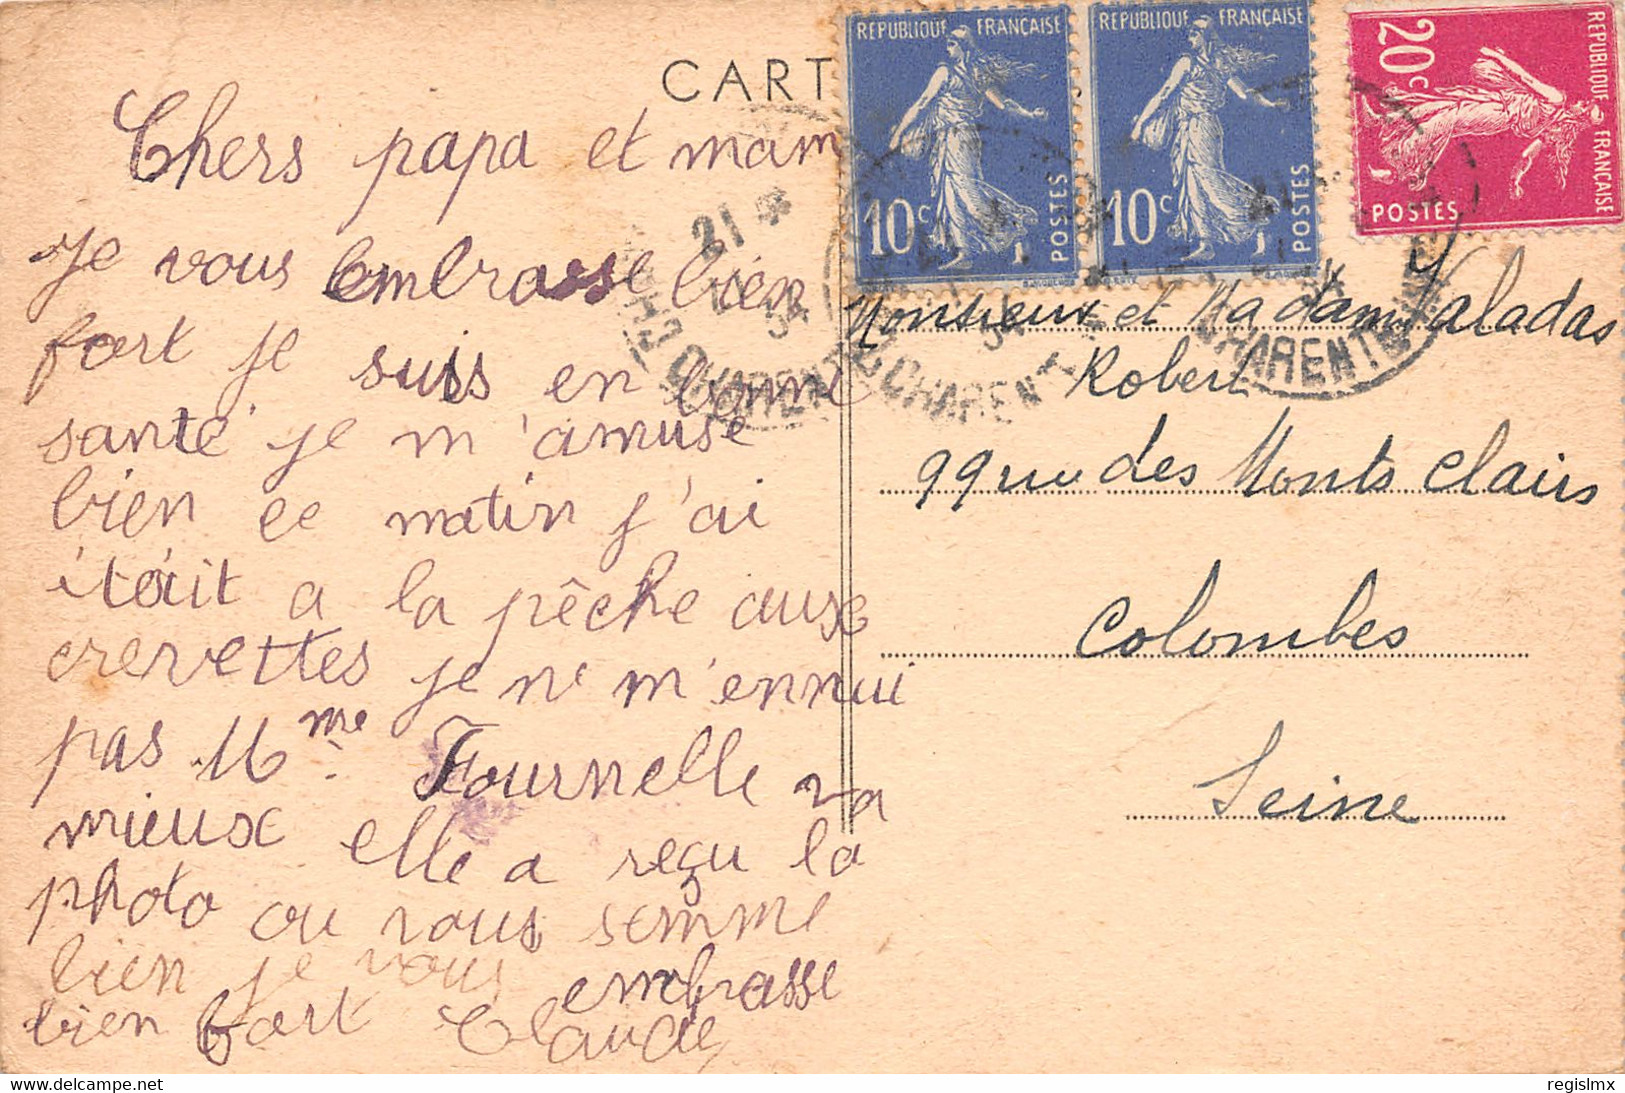 CART
Chers papa et mam
je vous embrasse bien
fort je suis en bonne
santé je m'amuse
bien ce matin j'ai
était a la pêche ause
crevettes je ne m'ennui
pas Mme Fournelle va
mieuse elle a reçu la
photo ou vous semme
bien je vous embrasse
bien fort Claude
REPUBLIQUE FRANÇAISE
10c
POSTES
REPUBLIQUE FRANÇAISE
10c
POSTES
REPUBLIQUE FRANÇAISE
20c
POSTES
21
34
CHARENTE
CHARENTE
CHARENTE
Monsieur et Madam Valadas
Robert
99 rue des Monts Clairs
Colombes
Seine
delcampe.net
regislmx